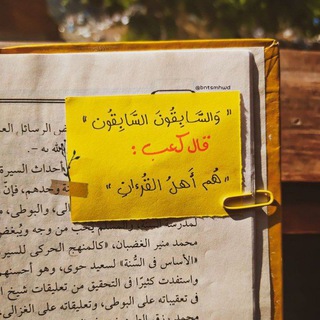 @bntsmhwd
" وَالسَّابِقُونَ السَّابِقُون "
قال كعب :
" هُم أَهلُ القُرءَانِ "
ض الرسائل العد
الله به ـ.
أحداث السيرة
وحدهم، فإنّ
الى، والبوطي،
يحب من وجه ويُبغض
محمد منير الغضبان، «كالمنهج الحركي للسيرة
«الأساس في السُّنة» لسعيد حوى، وهو أحسنهم
واستفدت كثيرًا في التحقيق من تعليقات شيخ
في تعقيباته على البوطي، وتعليقاته على الغزالي،
محمد رزق